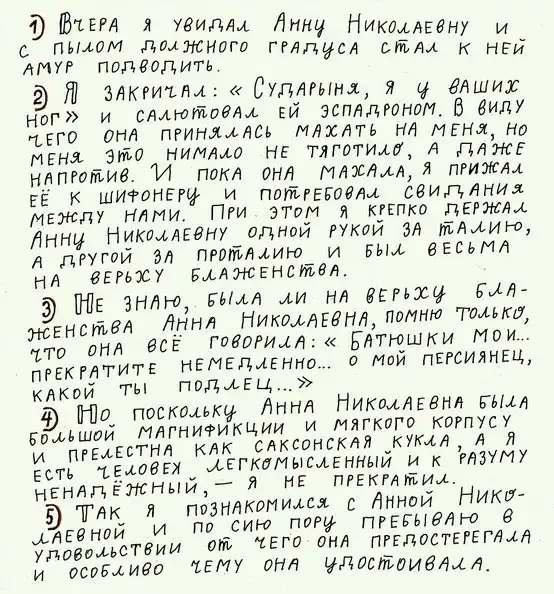 1) Вчера я увидал Анну Николаевну и
с пылом должного градуса стал к ней
амур подводить.
2) Я закричал: «Сударыня, я у ваших
ног» и салютовал ей эспадроном. В виду
чего она принялась махать на меня, но
меня это нимало не тяготило, а даже
напротив. И пока она махала, я прижал
её к шифонеру и потребовал свидания
между нами. При этом я крепко держал
Анну Николаевну одной рукой за талию,
а другой за проталию и был весьма
на верьху блаженства.
3) Не знаю, была ли на верьху бла-
женства Анна Николаевна, помню только,
что она всё говорила: «Батюшки мои...
прекратите немедленно... о мой персиянец,
какой ты подлец...»
4) Но поскольку Анна Николаевна была
большой магнификции и мягкого корпусу
и прелестна как саксонская кукла, а я
есть человек легкомысленный и к разуму
ненадёжный, — я не прекратил.
5) Так я познакомился с Анной Нико-
лаевной и по сию пору пребываю в
удовольствии от чего она предостерегала
и особливо чему она удостоивала.